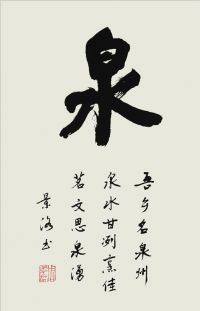 泉
吾乡名泉州
泉水甘冽烹佳
茗文思泉涌
景洛书